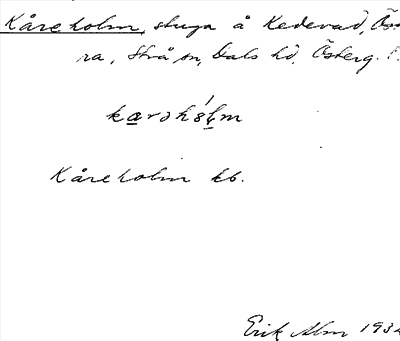 Kåreholm, stuga å Kedevad, Öst
ra, Strå sn, Dals hd, Österg. l.
karəhòlm
Kåreholm kb.
Erik Alm 193